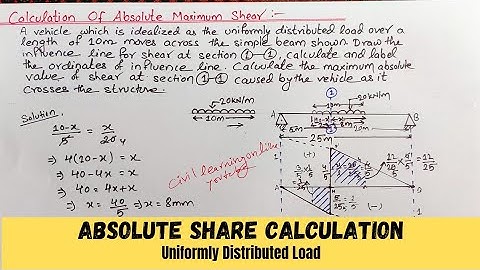 Calculation Of Absolute Maximum Shear :-
A vehicle which is idealized as the uniformly distributed load over a
length of 10m moves across the simple beam shown. Draw the
influence line for shear at section ①-①, calculate and label
the ordinates of influence line. Calculate the maximum absolute
value of shear at section ①-① caused by the vehicle as it
crosses the structure.
Solution.
10-x/5 = x/20
⇒ 4(20-x) = x
⇒ 40-4x = x
⇒ 40 = 4x+x
⇒ x = 40/5 ⇒ x = 8mm
20kN/m
10m
Civil learning online
youtube
20kN/m
10m
A
B
5m
20m
25m
(+)
(-)
ABSOLUTE SHARE CALCULATION
Uniformly Distributed Load